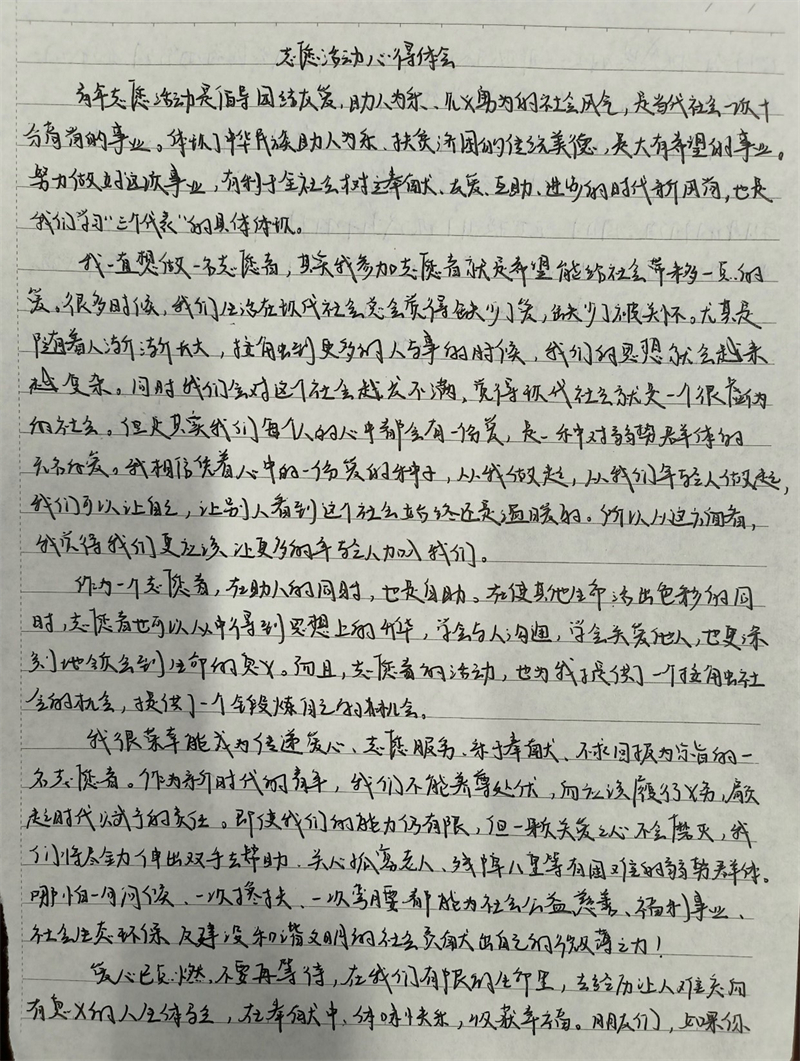 志愿活动心得体会
青年志愿活动是倡导团结友爱、助人为乐、见义勇为的社会风气，是当代社会一项十
分高尚的事业。体现了中华民族助人为乐、扶贫济困的传统美德，是大有希望的事业。
努力做好这项事业，有利于全社会树立奉献、友爱、互助、进步的时代新风尚，也是
我们学习“三个代表”的具体体现。
我一直想做一名志愿者，其实我参加志愿者就是希望能给社会带来多一点的
爱。很多时候，我们生活在现代社会总会觉得缺少了爱，缺少了被关怀。尤其是
随着人渐渐长大，接触到更多的人与事的时候，我们的思想就会越来
越复杂。同时我们会对这个社会越发不满，觉得现代社会就是一个很虚伪
的社会。但是其实我们每个人的心中都会有一份爱，是一种对弱势群体的
关爱。我相信凭着心中的一份爱的种子，从我做起，从我们年轻人做起，
我们可以让自己，让别人看到这个社会始终还是温暖的。所以从这方面看，
我觉得我们更应该让更多的年轻人加入我们。
作为一个志愿者，在助人的同时，也是自助。在使其他生命活出色彩的同
时，志愿者也可以从中得到思想上的升华，学会与人沟通，学会关爱他人，也更深
刻地领会到生命的奥义。而且，志愿者的活动，也为我提供了一个接触社
会的机会，提供了一个锻炼自己的机会。
我很荣幸能成为传递爱心、志愿服务、乐于奉献、不求回报为宗旨的一
名志愿者。作为新时代的青年，我们不能养尊处优，而应该履行义务，肩负
起时代赋予的责任。即使我们的能力仍有限，但一颗关爱之心不会磨灭，我
们将尽全力伸出双手去帮助、关心孤寡老人、残障儿童等有困难的弱势群体。
哪怕一句问候、一次搀扶、一次弯腰都能为社会公益、慈善、福利事业、
社会生态环保及建设和谐文明的社会贡献出自己的微薄之力！
爱心已点燃，不要再等待，在我们有限的生命里，去经历让人难忘而
有意义的人生体验，在奉献中，体味快乐，收获幸福。朋友们，如果你